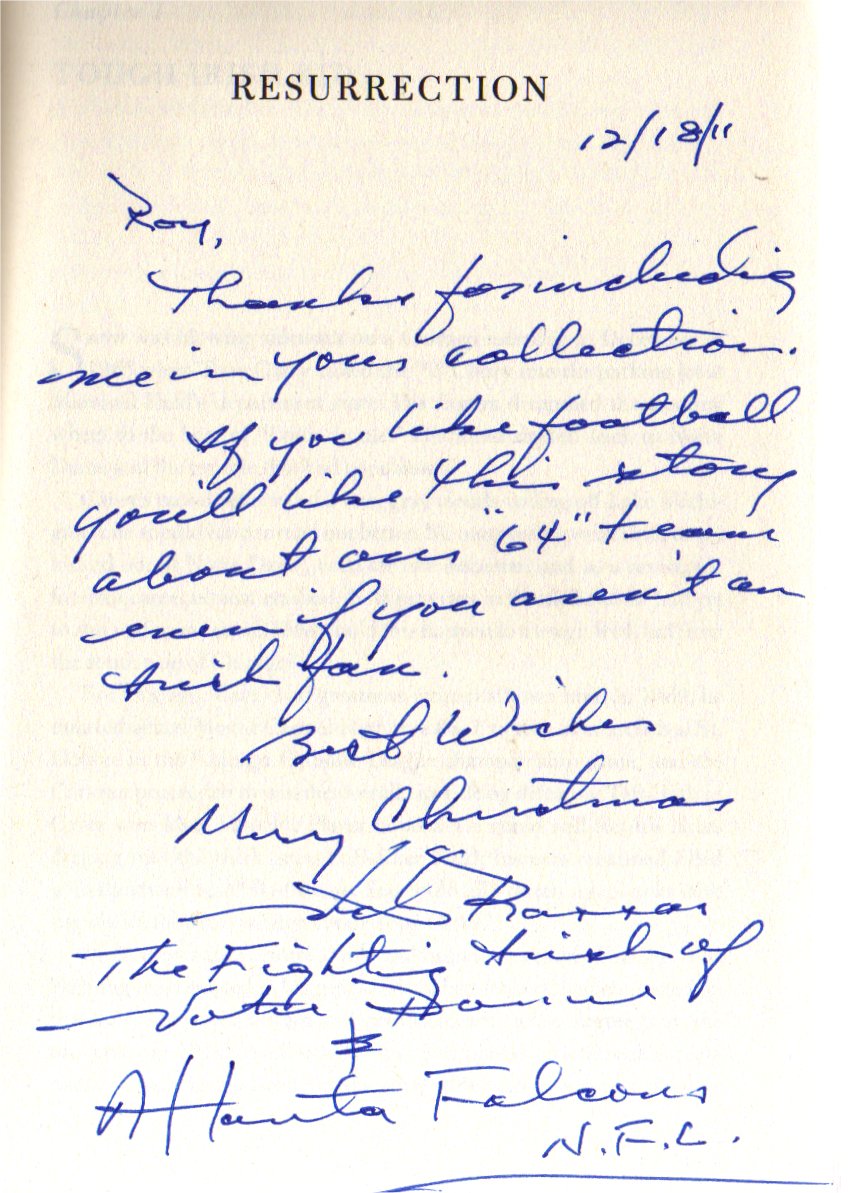 RESURRECTION
12/18/11
Roy,
Thanks for including
me in your collection.
If you like football
you'll like this story
about our "64" team
even if you aren't an
Irish fan.
Best Wishes
Merry Christmas
Rassas
The Fighting Irish of
Notre Dame
&
Atlanta Falcons
N.F.L.